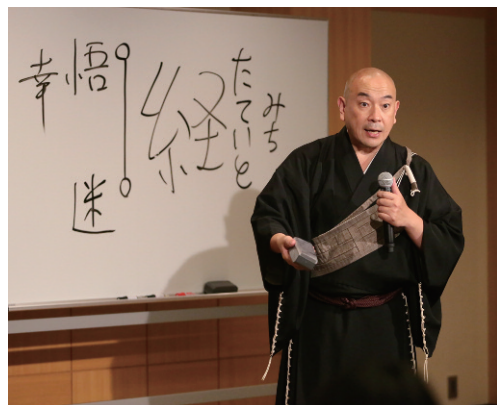 みち
たていと
経
悟
迷
幸